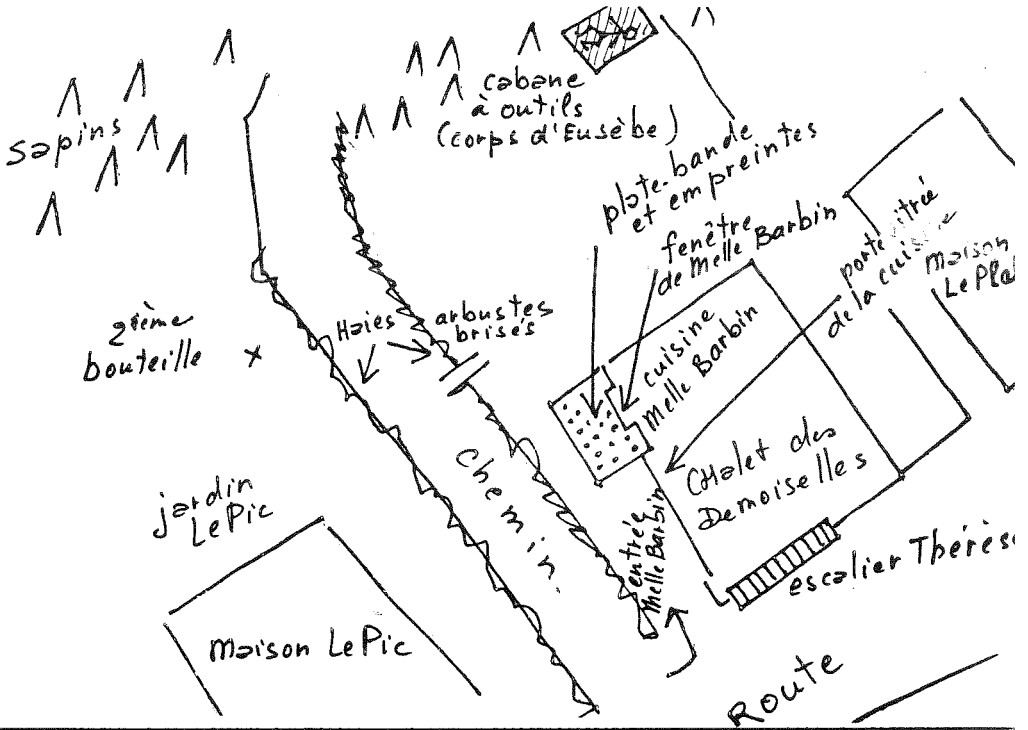 sapins
cabane
à outils
(corps d'Eusèbe)
plate-bande
et empreintes
fenêtre
de Melle Barbin
porte vitrée
de la cuisine
maison
2ième
bouteille
Haies
arbustes
brisés
cuisine
Melle Barbin
CHalet des
Demoiselles
Chemin
jardin
LePic
entrée
Melle Barbin
escalier Thérèse
maison LePic
ROUTE